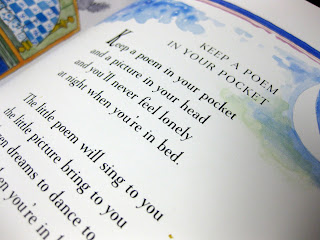 KEEP A POEM
IN YOUR POCKET
Keep a poem in your pocket
and a picture in your head
and you'll never feel lonely
at night when you're in bed.
The little poem will sing to you
the little picture bring to you
dreams to dance to
you're in